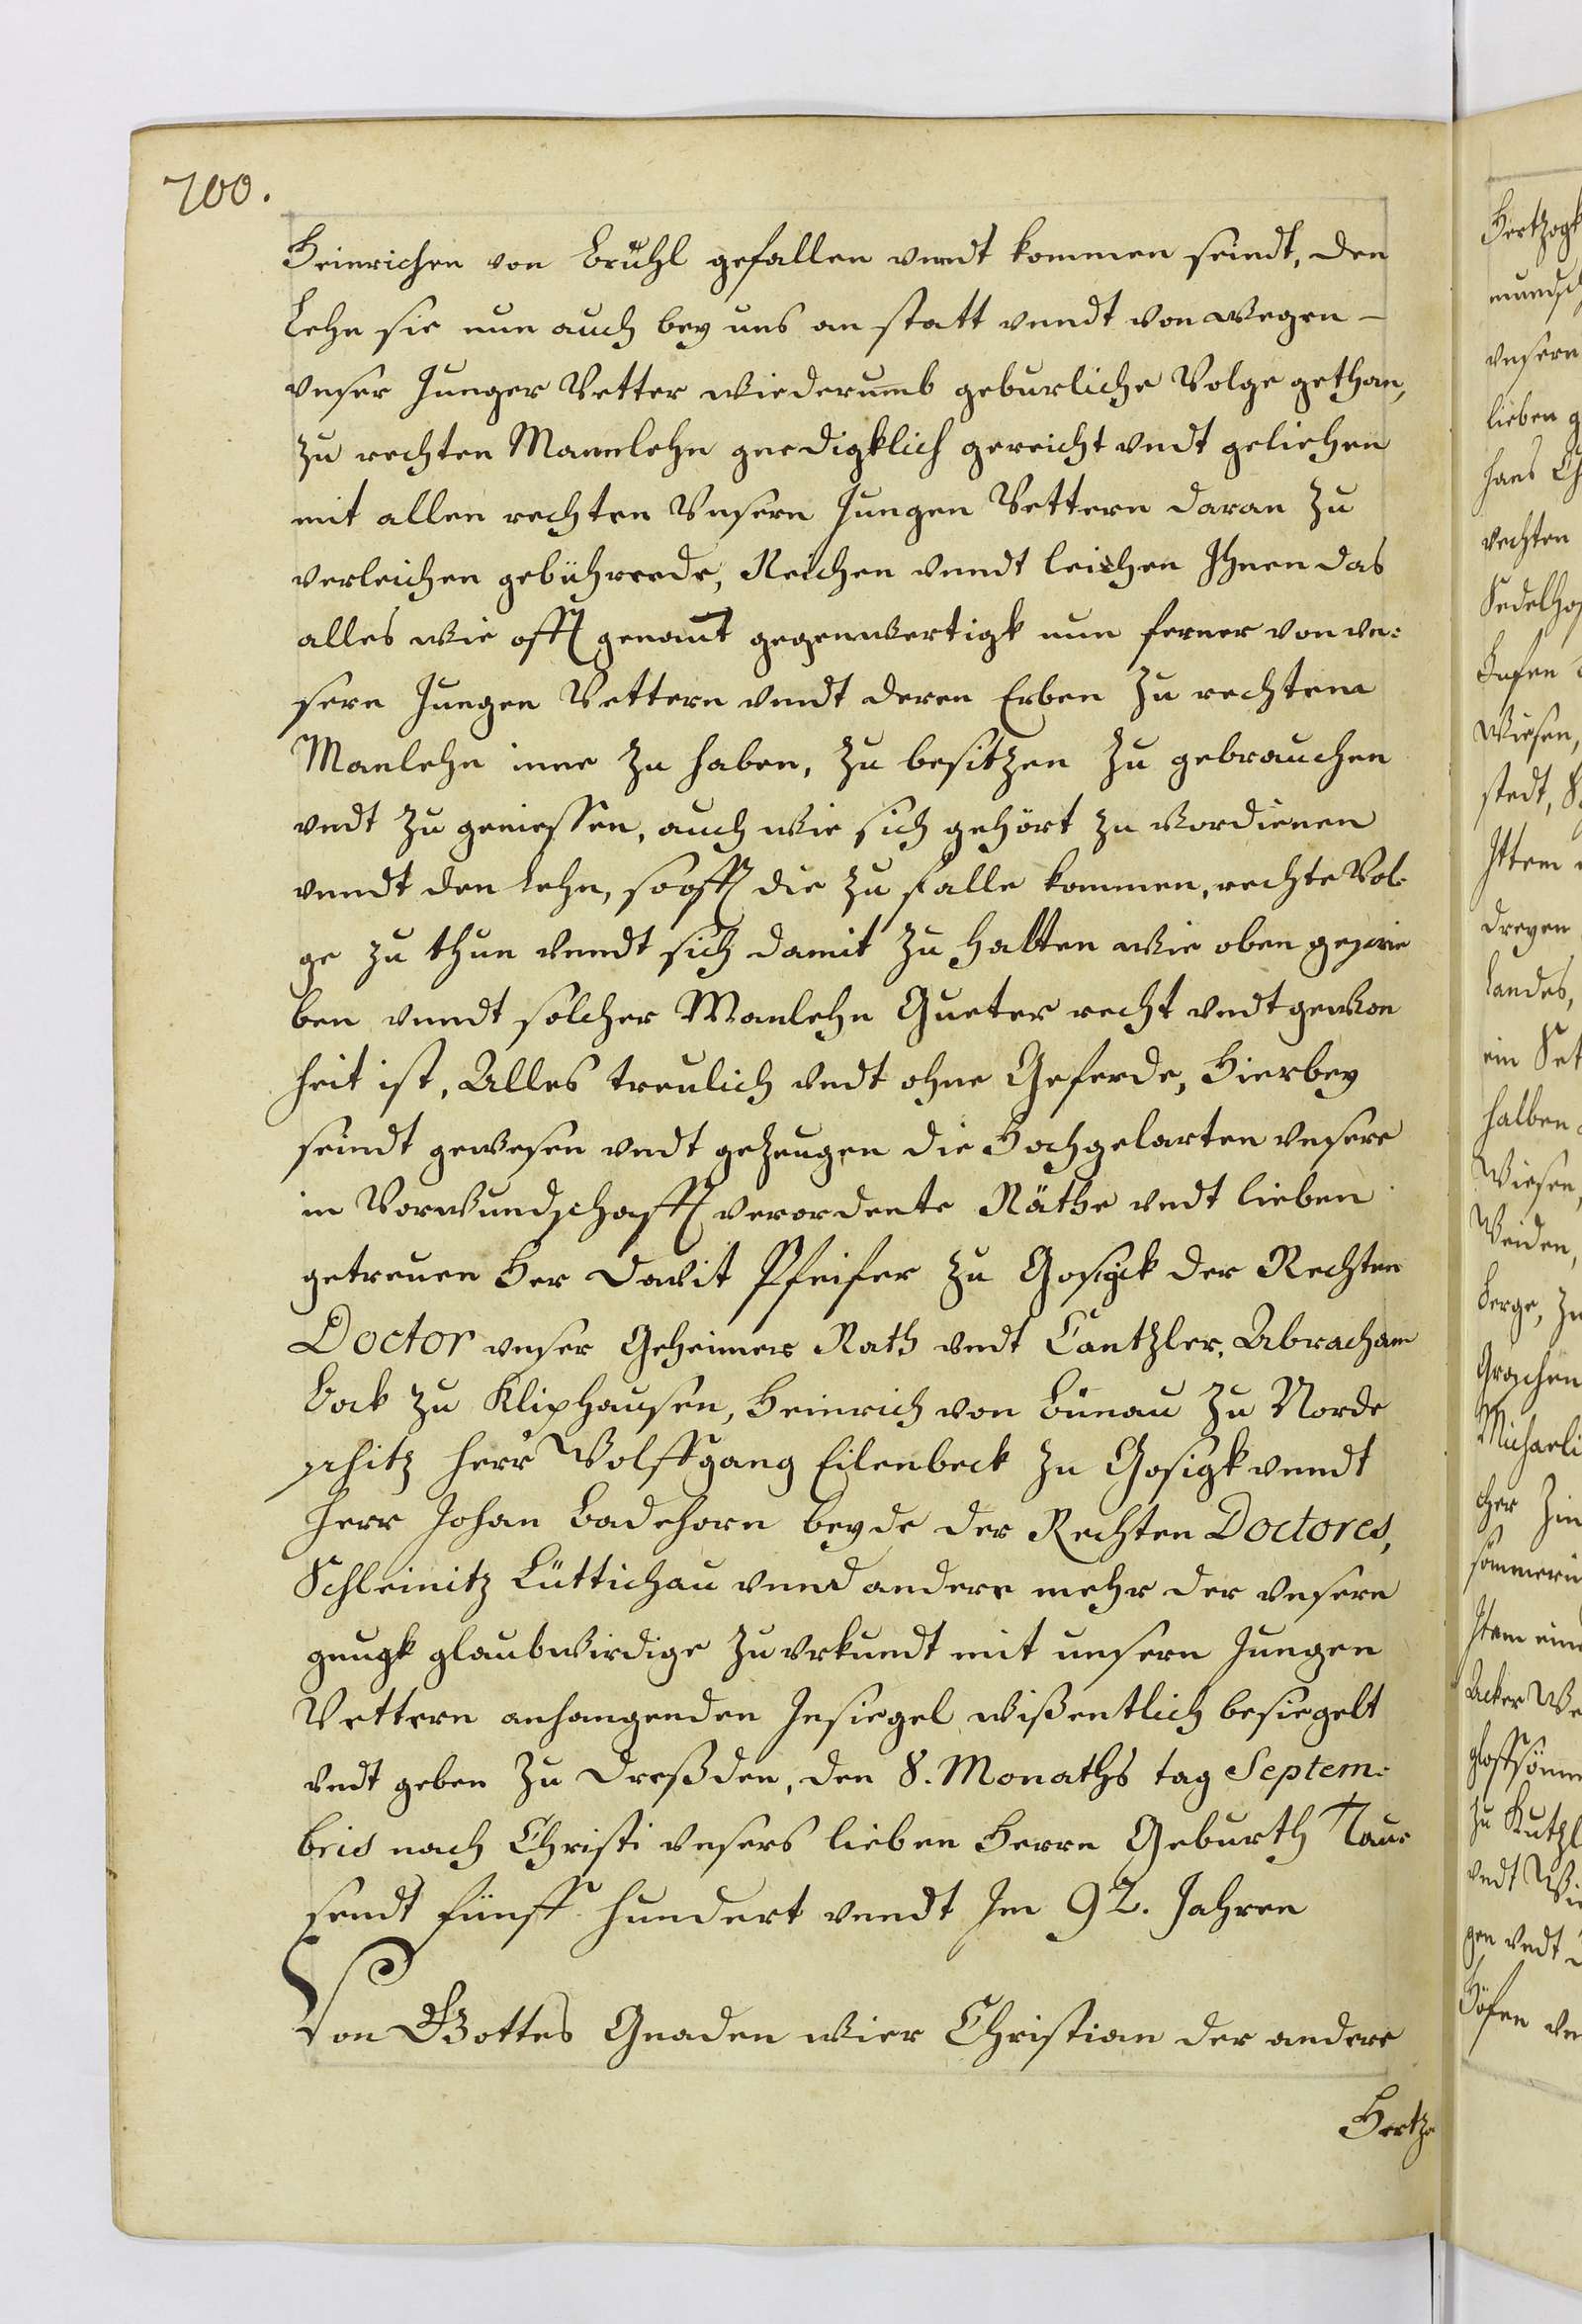 700.
Heinrichen von Brühl gefallen vnndt kommen seindt, den
Lehn sie nun auch bey uns an statt vnndt von wegen -
vnser Junger Vetter wiederumb geburliche Volge gethan,
zu rechten Mannlehn gnedigklich gereicht vndt geliehen
mit allen rechten Vnsern Jungen Vettern daran zu
verleichen gebührende, Reichen vnndt leichen Ihnen das
alles wie offt genant gegenwertigk nun ferner von vn:
sern Jungen Vettern vndt deren Erben zu rechtem
Manlehn inne zu haben, zu besitzen zu gebrauchen
vndt zu geniessen, auch wie sich gehört zu vordienen
vnndt den Lehn, so offt die zu falle kommen, rechte Vol:
ge zu thun vnndt sich damit zu halten wie oben geschrie
ben vnndt solcher Manlehn Gueter recht vndt gewon
heit ist, Alles treulich vndt ohne Geferde, Hierbey
seindt gewesen vndt gezeugen die Hochgelarten vnsere
in Vormundschafft verordente Räthe vndt lieben
getreuen Her Davit Pfeifer zu Gosigk der Rechten
Doctor vnser Geheimer Rath vndt Cantzler, Abracham
Bock zu Kliphausen, Heinrich von Bünau zu Norde
schitz Herr Wolffgang Eilenbeck zu Gosigk vnndt
Herr Johan Badehorn beyde der Rechten Doctores,
Schleinitz Lüttichau vnnd andere mehr der vnsern
gnugk glaubwirdige zu vrkundt mit unsern Jungen
Vettern anhangenden Insiegel wißentlich besiegelt
vndt geben zu Dreßden, den 8. Monaths tag Septem:
bris nach Christi vnsers lieben Herrn Geburth Tau:
sendt fünff hundert vnndt Im 92. Jahren
Von Gottes Gnaden wier Christian der andere
Hertzo
Hertzogk
mundsch
vnsern
lieben g
hans Ch
rechten
Sedelho
Hufen
Wiesen,
stedt,
Ittem
dreyen
Landes,
ein
halben
Wiesen,
Weiden,
Berge, zu
Groschen
Michaeli
cher Zin
sommerin
Item ein
Acker We
zu
vndt Wie
gen vndt
Höfen vn